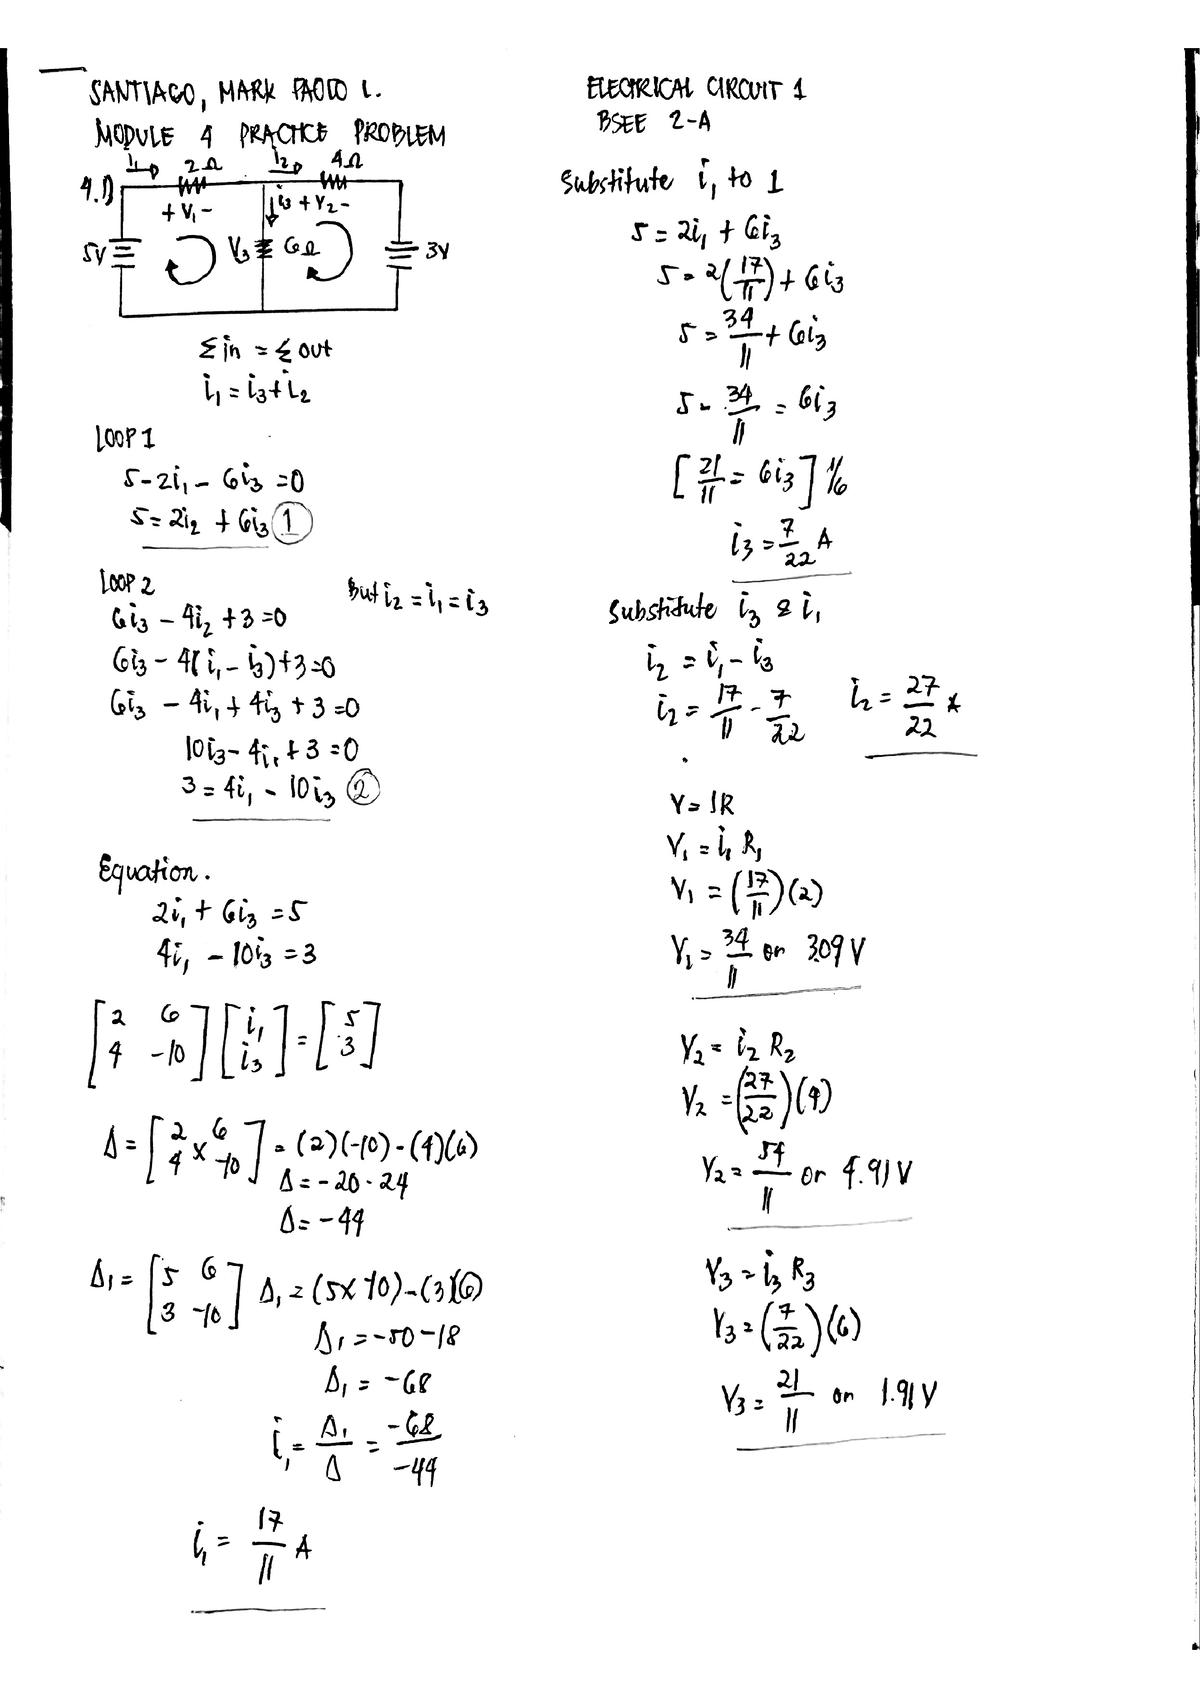 SANTIAGO, MARK PAOLO L.
MODULE 4 PRACTICE PROBLEM
4.1)
i₁ → 2Ω i₂ → 4Ω
+ V₁ - i₃ + V₂ -
5V V₃ 6Ω 3V
Σ in = Σ out
i₁ = i₃ + i₂
LOOP 1
5 - 2i₁ - 6i₃ = 0
5 = 2i₂ + 6i₃ ①
LOOP 2
But i₂ = i₁ = i₃
6i₃ - 4i₂ + 3 = 0
6i₃ - 4(i₁ - i₃) + 3 = 0
6i₃ - 4i₁ + 4i₃ + 3 = 0
10i₃ - 4i₁ + 3 = 0
3 = 4i₁ - 10i₃ ②
Equation.
2i₁ + 6i₃ = 5
4i₁ - 10i₃ = 3
[2 6; 4 -10] [i₁; i₃] = [5; 3]
Δ = [2 6; 4 × -10] = (2)(-10) - (4)(6)
Δ = -20 - 24
Δ = -44
Δ₁ = [5 6; 3 -10] Δ₁ = (5 × -10) - (3)(6)
Δ₁ = -50 - 18
Δ₁ = -68
i₁ = Δ₁/Δ = -68/-44
i₁ = 17/11 A
ELECTRICAL CIRCUIT 1
BSEE 2-A
Substitute i₁ to 1
5 = 2i₁ + 6i₃
5 = 2(17/11) + 6i₃
5 = 34/11 + 6i₃
5 - 34/11 = 6i₃
[21/11 = 6i₃] 1/6
i₃ = 7/22 A
Substitute i₃ & i₁
i₂ = i₁ - i₃
i₂ = 17/11 - 7/22 i₂ = 27/22 A
V = IR
V₁ = i₁ R₁
V₁ = (17/11)(2)
V₁ = 34/11 or 3.09 V
V₂ = i₂ R₂
V₂ = (27/22)(4)
V₂ = 54/11 or 4.91 V
V₃ = i₃ R₃
V₃ = (7/22)(6)
V₃ = 21/11 or 1.91 V